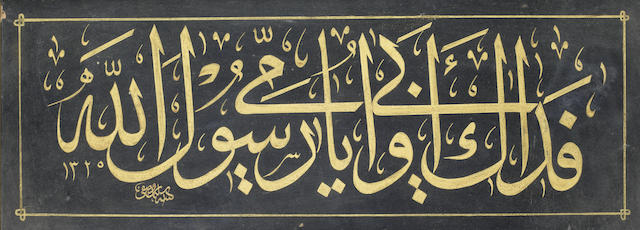 فداك أبي وأمي يا رسول الله
١٣٢٥